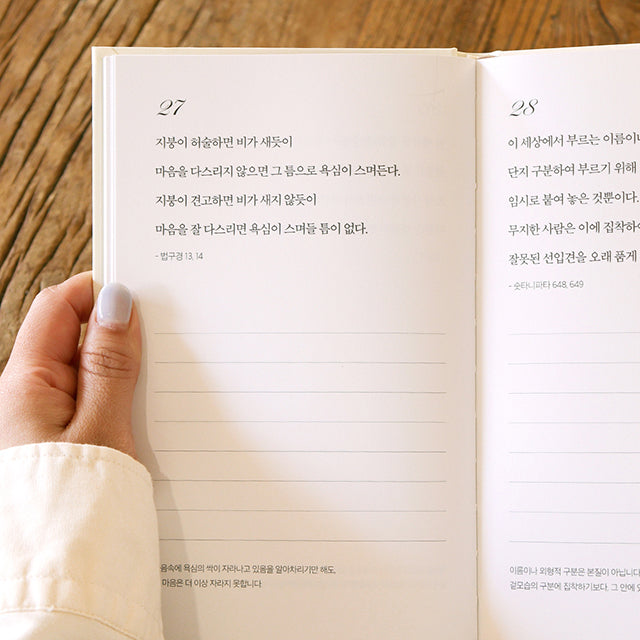 27
지붕이 허술하면 비가 새듯이
마음을 다스리지 않으면 그 틈으로 욕심이 스며든다.
지붕이 견고하면 비가 새지 않듯이
마음을 잘 다스리면 욕심이 스며들 틈이 없다.
- 법구경 13, 14
음속에 욕심의 싹이 자라나고 있음을 알아차리기만 해도,
마음은 더 이상 자라지 못합니다
28
이 세상에서 부르는 이름이나
단지 구분하여 부르기 위해
임시로 붙여 놓은 것뿐이다.
무지한 사람은 이에 집착하여
잘못된 선입견을 오래 품게
- 숫타니파타 648, 649
이름이나 외형적 구분은 본질이 아닙니다
겉모습의 구분에 집착하기보다, 그 안에